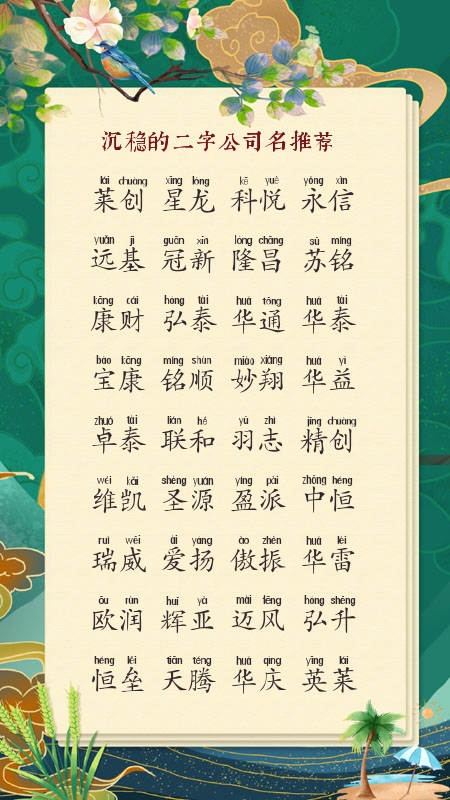 沉稳的二字公司名推荐
lái chuàng xīng lóng kē yuè yǒng xìn
莱创 星龙 科悦 永信
yuǎn jī guān xīn lóng chāng sū míng
远基 冠新 隆昌 苏铭
kāng cái hóng tài huá tōng huá tài
康财 弘泰 华通 华泰
bǎo kāng míng shùn miào xiáng huá yì
宝康 铭顺 妙翔 华益
zhuó tài lián hé yǔ zhì jīng chuàng
卓泰 联和 羽志 精创
wéi kǎi shèng yuán yíng pài zhōng héng
维凯 圣源 盈派 中恒
ruì wēi ài yáng ào zhèn huá léi
瑞威 爱扬 傲振 华雷
ōu rùn huī yà mài fēng hóng shēng
欧润 辉亚 迈风 弘升
héng lěi tiān téng huá qìng yīng lái
恒垒 天腾 华庆 英莱